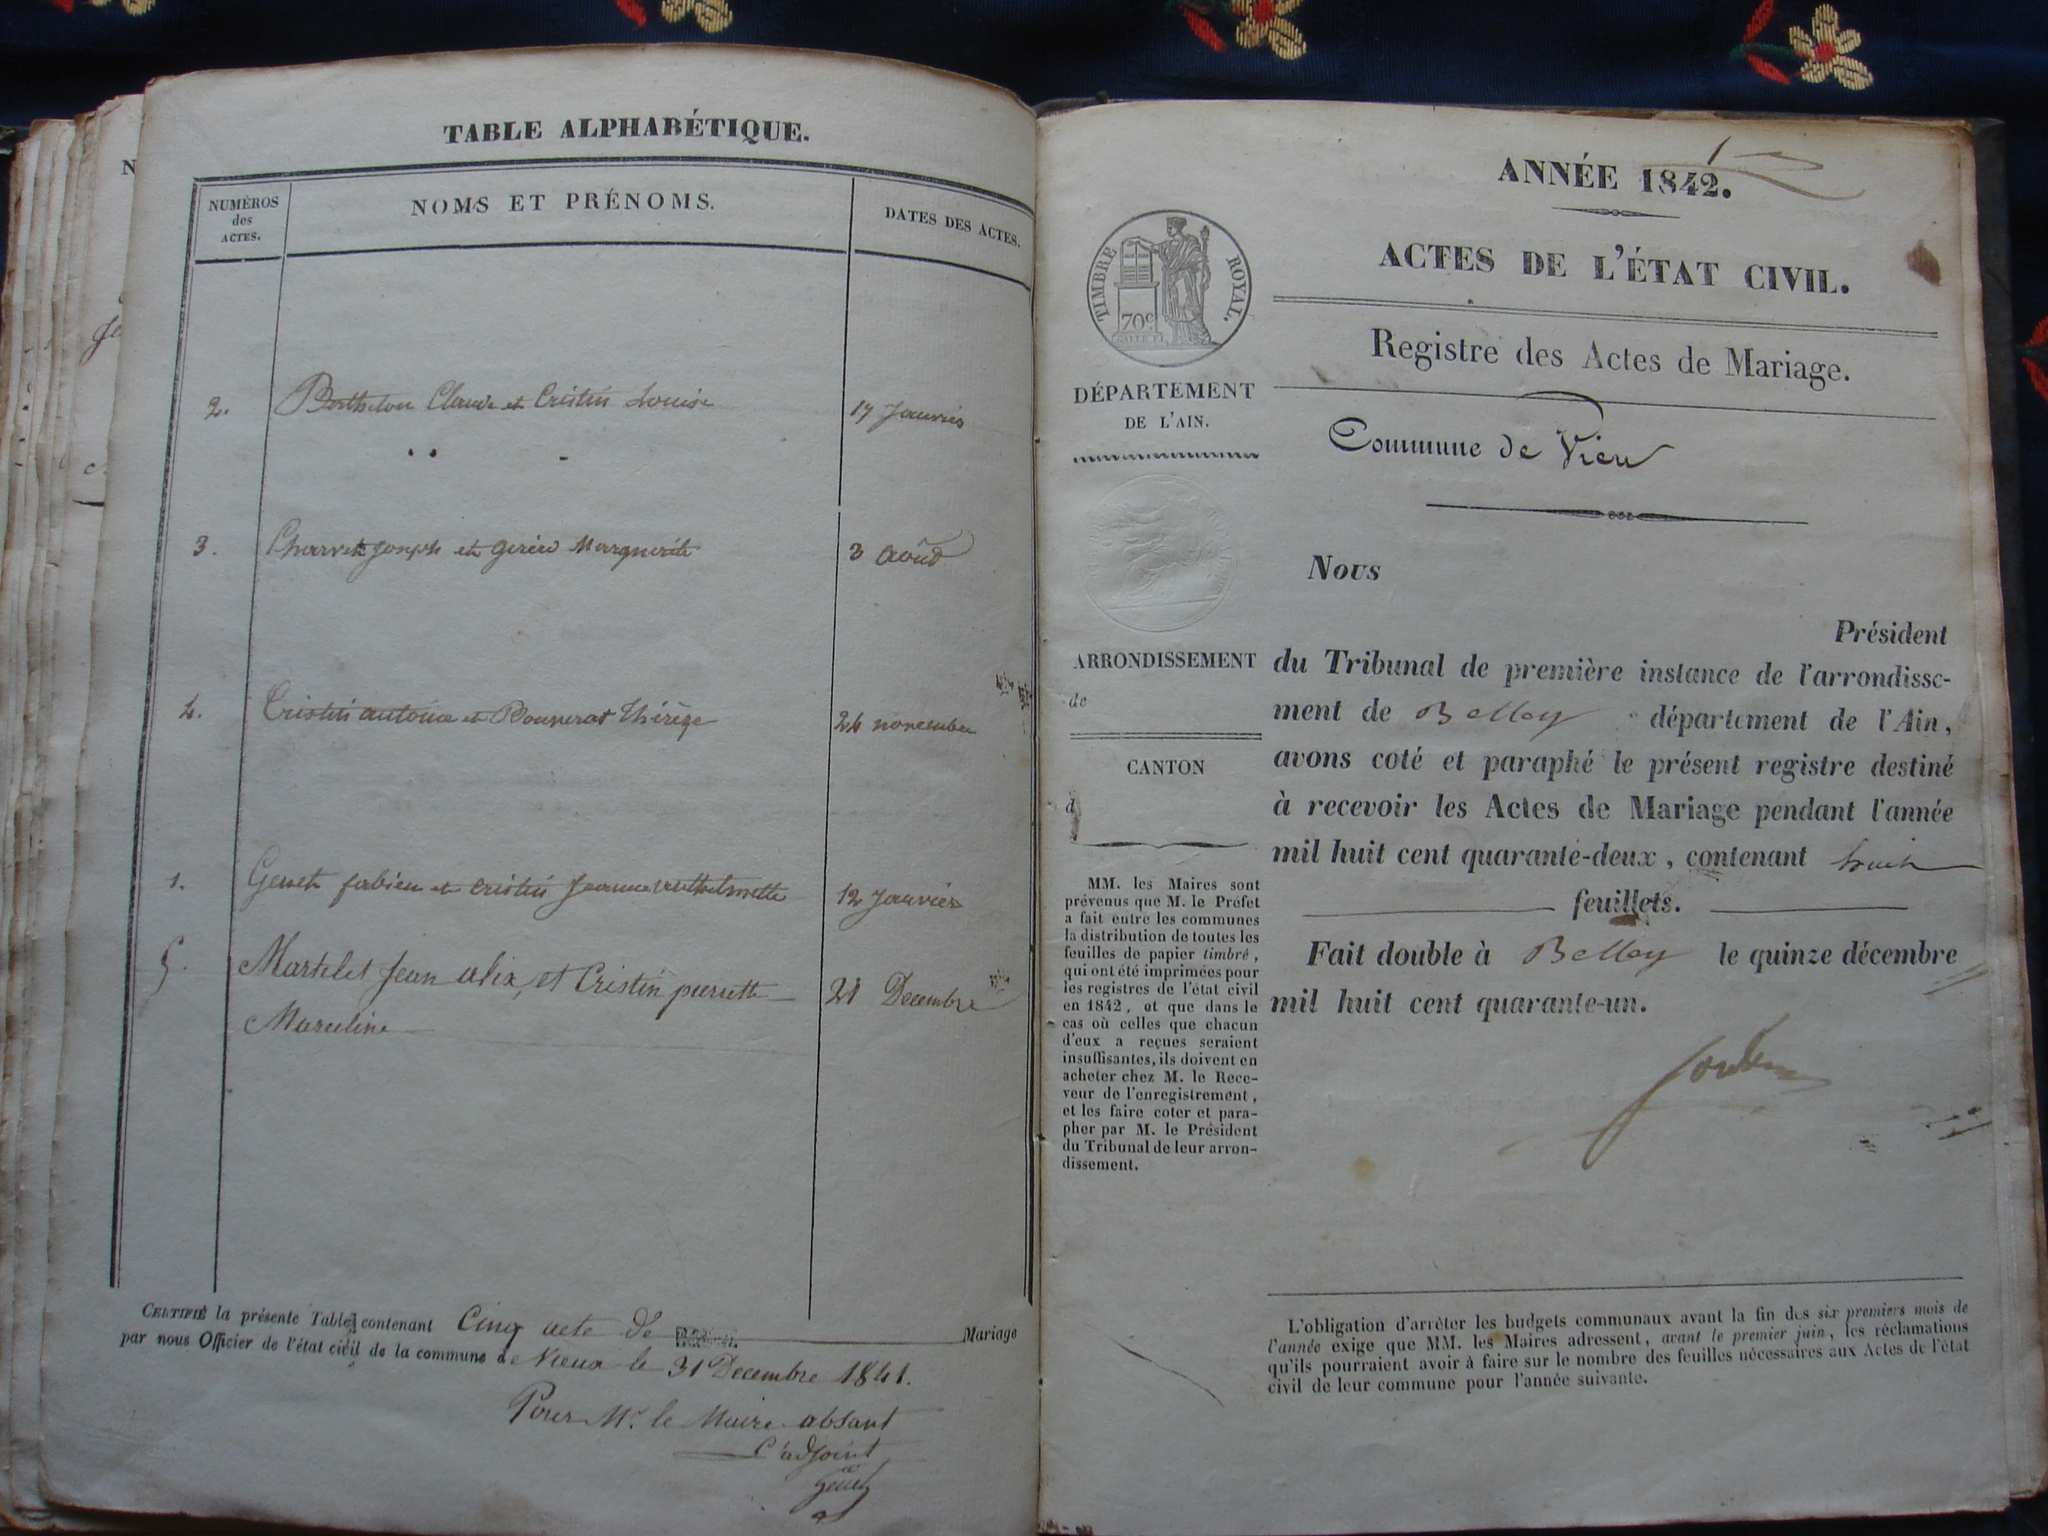 TABLE ALPHABÉTIQUE.
NUMÉROS
des
ACTES.
NOMS ET PRÉNOMS.
DATES DES ACTES.
2. Berthelon Claude et Cristin Louise 17 Janvier
3. Charvet Joseph et Marguerite 3 Août
4. Cristin antoine et Bonnerat Thérèze 24 novembre
1. Genet fabien et Cristin Jeanne 12 Janvier
5. Martelet Jean alix, et Cristin pierrette 21 Decembre
Marceline
CERTIFIÉ la présente Table contenant Cinq acte de Mariage
par nous Officier de l'état civil de la commune de Vieux le 31 Decembre 1841.
Pour Mr. le Maire absant
L'adjoint
Genet
1
ANNÉE 1842.
ACTES DE L'ÉTAT CIVIL.
TIMBRE ROYAL.
70c
Registre des Actes de Mariage.
DÉPARTEMENT
DE L'AIN.
Commune de Vieu
Nous
Président
du Tribunal de première instance de l'arrondisse-
ment de Belley département de l'Ain,
avons coté et paraphé le présent registre destiné
à recevoir les Actes de Mariage pendant l'année
mil huit cent quarante-deux, contenant huit
feuillets.
Fait double à Belley le quinze décembre
mil huit cent quarante-un.
ARRONDISSEMENT
de
CANTON
d
MM. les Maires sont
prévenus que M. le Préfet
a fait entre les communes
la distribution de toutes les
feuilles de papier timbré,
qui ont été imprimées pour
les registres de l'état civil
en 1842, et que dans le
cas où celles que chacun
d'eux a reçues seraient
insuffisantes, ils doivent en
acheter chez M. le Rece-
veur de l'enregistrement,
et les faire coter et para-
pher par M. le Président
du Tribunal de leur arron-
dissement.
L'obligation d'arrêter les budgets communaux avant la fin des six premiers mois de
l'année exige que MM. les Maires adressent, avant le premier juin, les réclamations
qu'ils pourraient avoir à faire sur le nombre des feuilles nécessaires aux Actes de l'état
civil de leur commune pour l'année suivante.